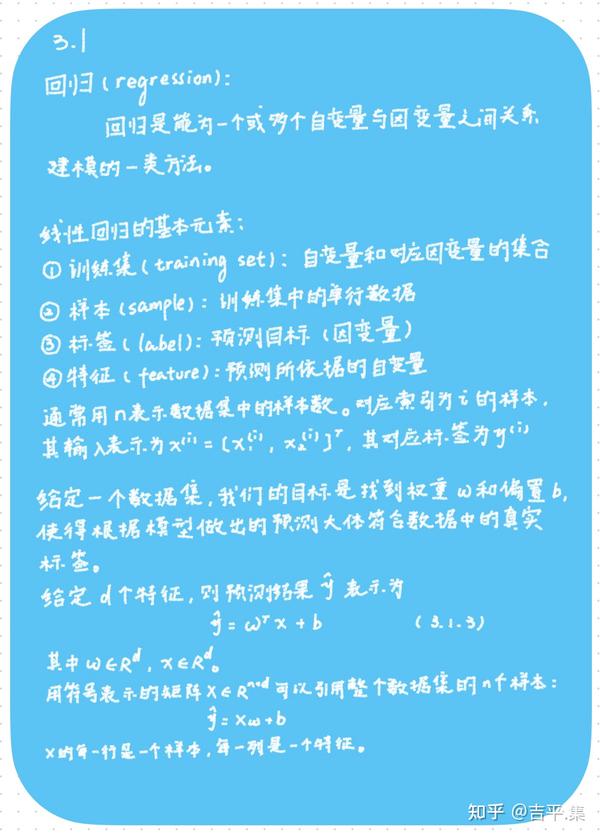 3.1
回归(regression):
回归是能为一个或多个自变量与因变量之间关系
建模的一类方法。
线性回归的基本元素:
① 训练集(training set): 自变量和对应因变量的集合
② 样本(sample): 训练集中的单行数据
③ 标签(label): 预测目标(因变量)
④ 特征(feature): 预测所依据的自变量
通常用n表示数据集中的样本数。对应索引为i的样本,
其输入表示为 x⁽ⁱ⁾ = [x₁⁽ⁱ⁾, x₂⁽ⁱ⁾]ᵀ, 其对应标签为y⁽ⁱ⁾
给定一个数据集,我们的目标是找到权重 w和偏置 b,
使得根据模型做出的预测大体符合数据中的真实
标签。
给定 d个特征,则预测结果 ŷ 表示为
ŷ = wᵀx + b (3.1.3)
其中 w∈Rᵈ, x∈Rᵈ。
用符号表示的矩阵 X∈Rⁿˣᵈ 可以引用整个数据集的n个样本:
ŷ = Xw + b
X的每一行是一个样本,每一列是一个特征。
知乎 @吉平.集